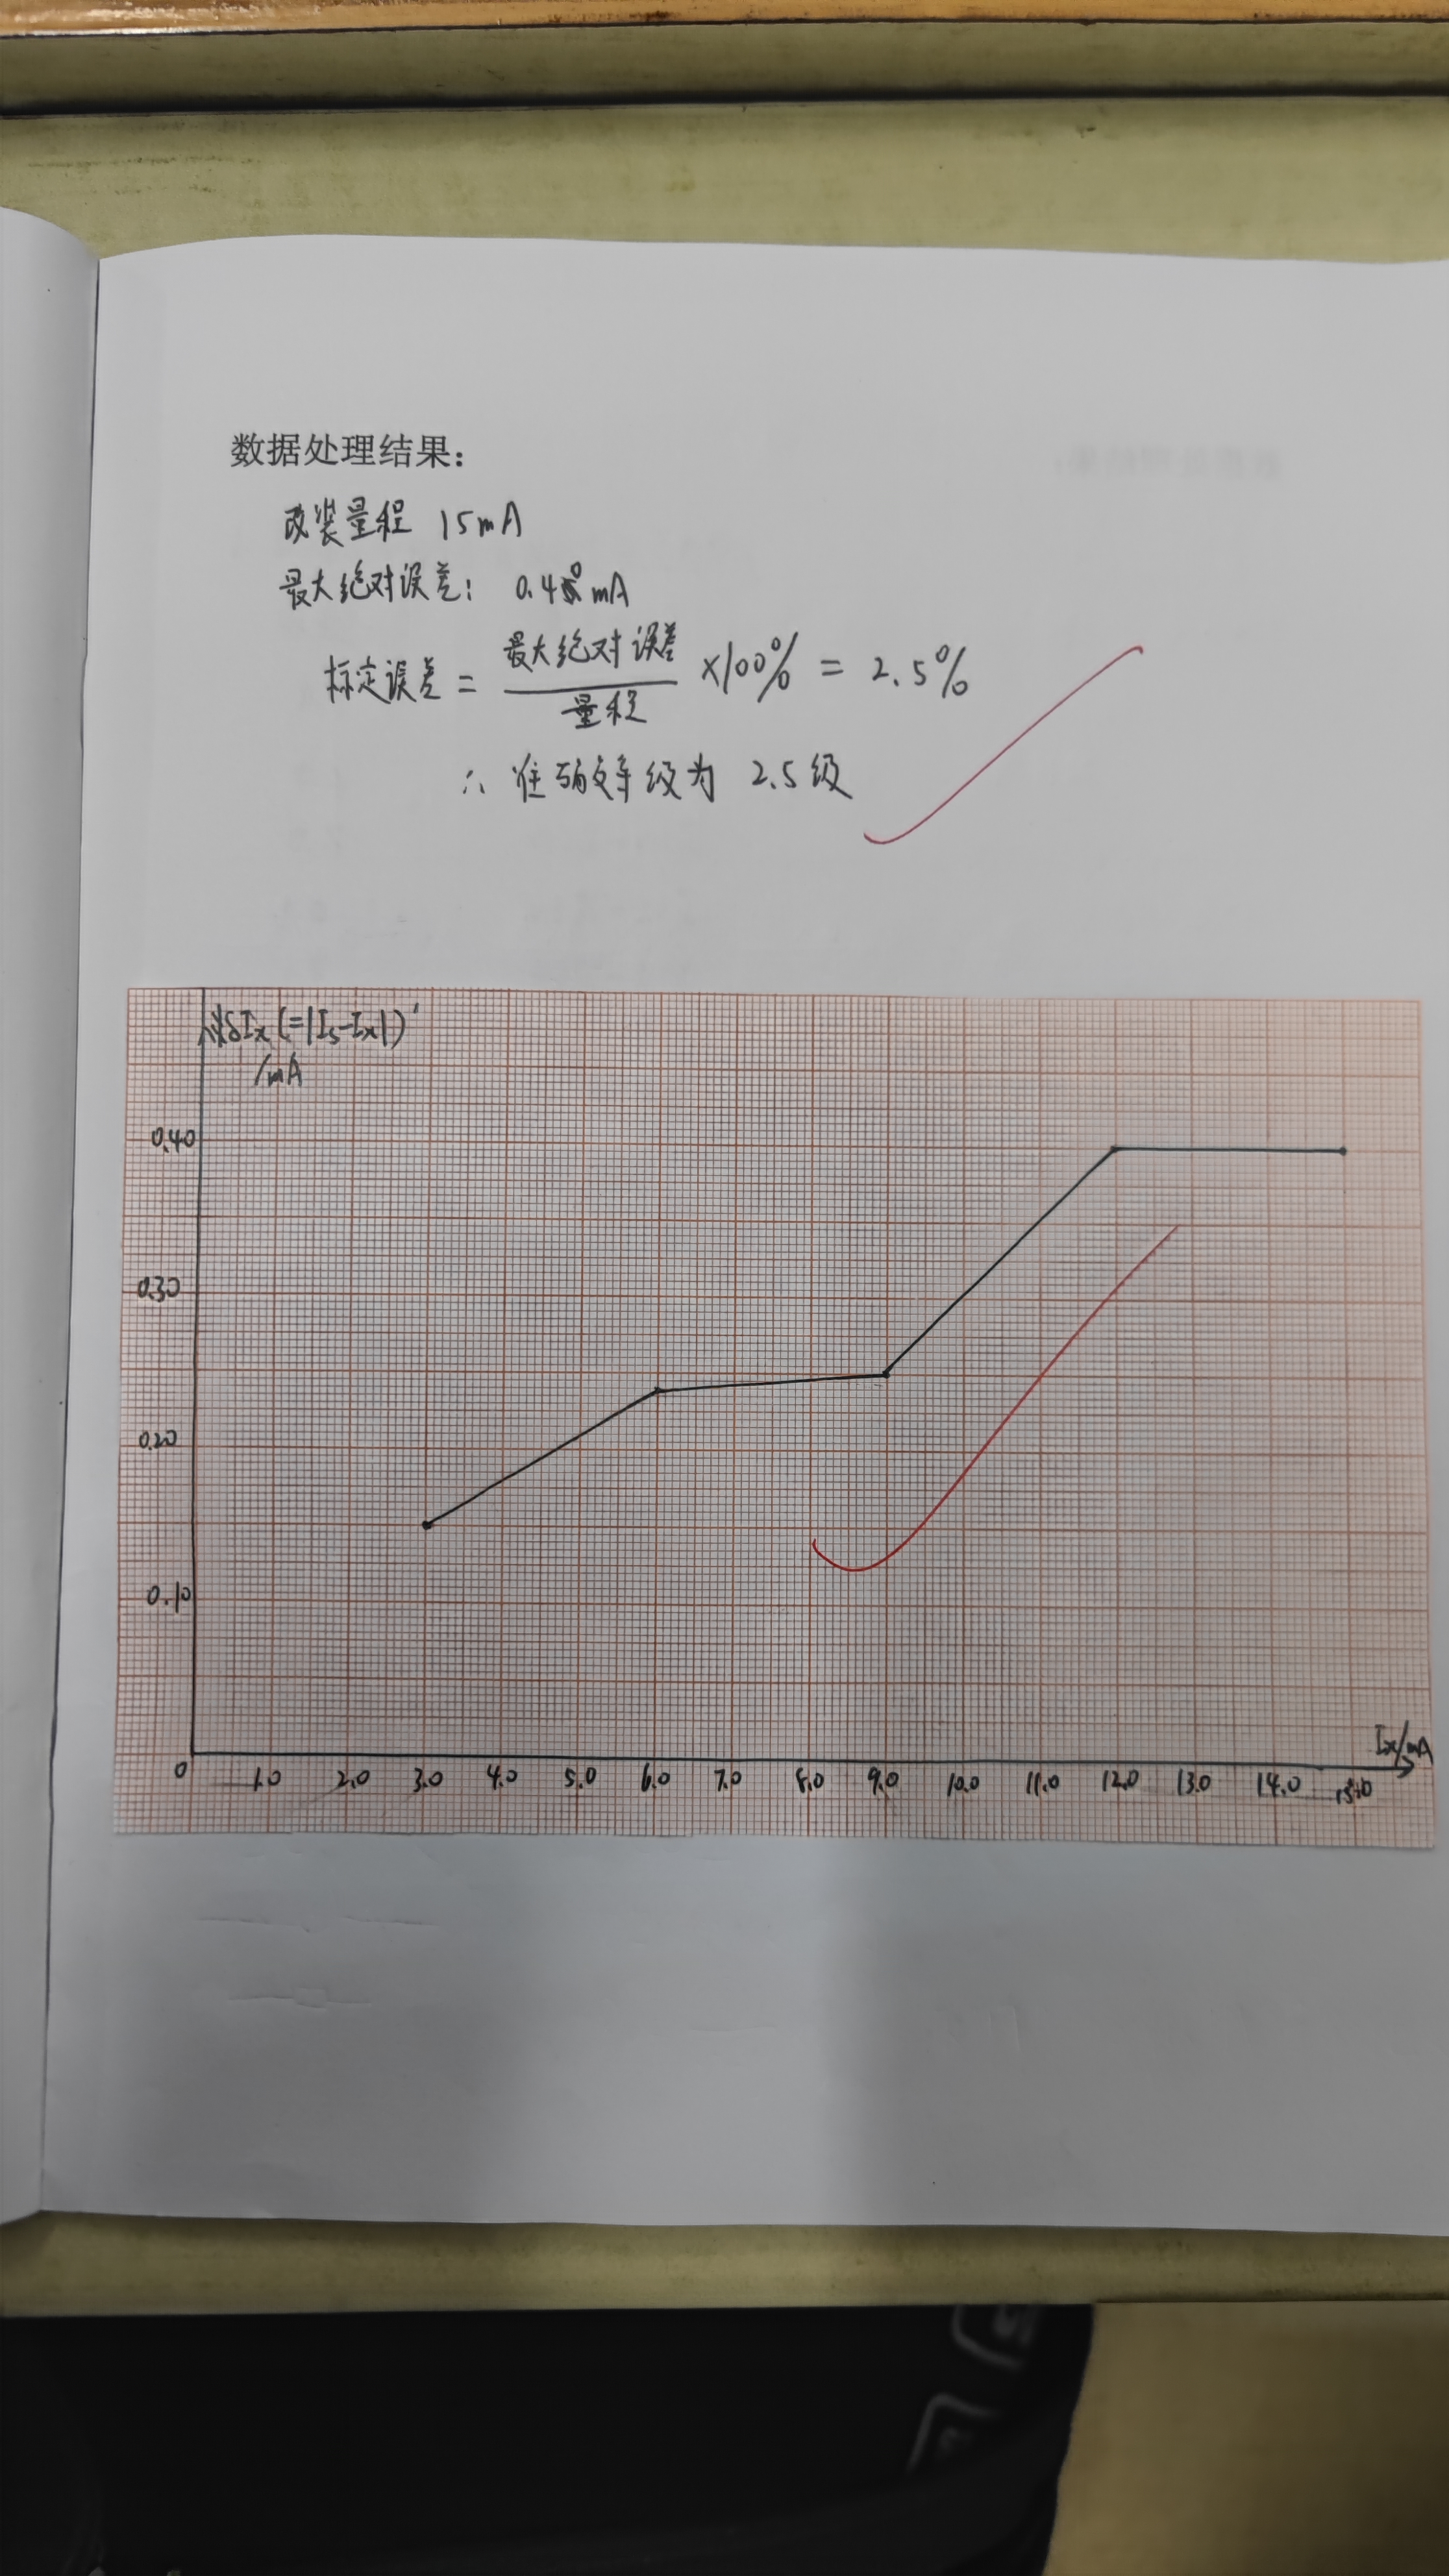 数据处理结果：
改装量程 15mA
最大绝对误差： 0.40 mA
标定误差 = 最大绝对误差/量程 ×100% = 2.5%
∴ 准确等级为 2.5级
δIx (=|Is-Ix|)
/mA
0.40
0.30
0.20
0.10
Ix/mA
0 1.0 2.0 3.0 4.0 5.0 6.0 7.0 8.0 9.0 10.0 11.0 12.0 13.0 14.0 15.0